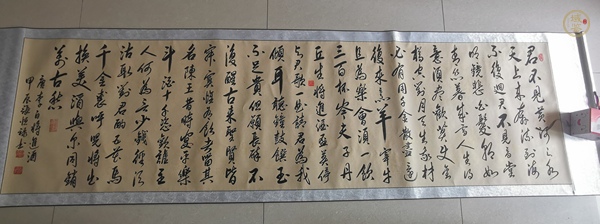 君不見黃河之水
天上來奔流到海
不復回君不見高堂
明鏡悲白髮朝如
青絲暮成雪人生得
意須盡歡莫使金
樽空對月天生我材
必有用千金散盡還
復來烹羊宰牛
且為樂會須一飲
三百杯岑夫子丹
丘生將進酒杯莫停
與君歌一曲請君為我
傾耳聽鐘鼓饌玉
不足貴但願長醉不
復醒古來聖賢皆
寂寞惟有飲者留其
名陳王昔時宴平樂
斗酒十千恣歡謔主
人何為言少錢徑須
沽取對君酌五花馬
千金裘呼兒將出
換美酒與爾同銷
萬古愁
唐李白將進酒
甲辰